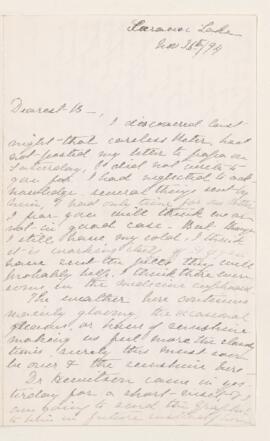 Saranac Lake
Nov 26th/94
Dearest B—,
I discovered last
night that careless Hater, had
not posted my letter to papa on
Saturday, I did not write to
you for I had neglected to ack-
nowledge several things sent by
him, & had only time for one letter
I fear you will think we are
not in good case. But though
I still have my cold, I think
it is
have sent the pills they will
probably help, I think there were
some in the medicine cupboard
The weather here continues
mainly gloomy, the occasional
pleasant, or hours of sunshine
making us feel more the cloudy
times, surely this must soon
be over & the sunshine here.
Dr came in yes-
terday for a short visit & I
am going to send the
to him in future instead of